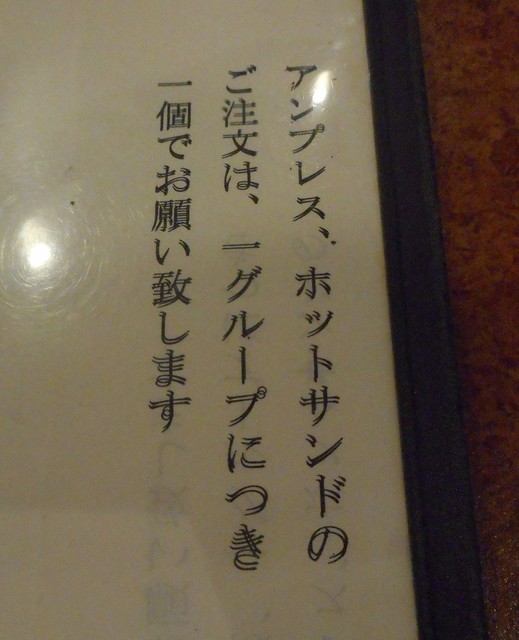 アンプレス、ホットサンドの
ご注文は、一グループにつき
一個でお願い致します